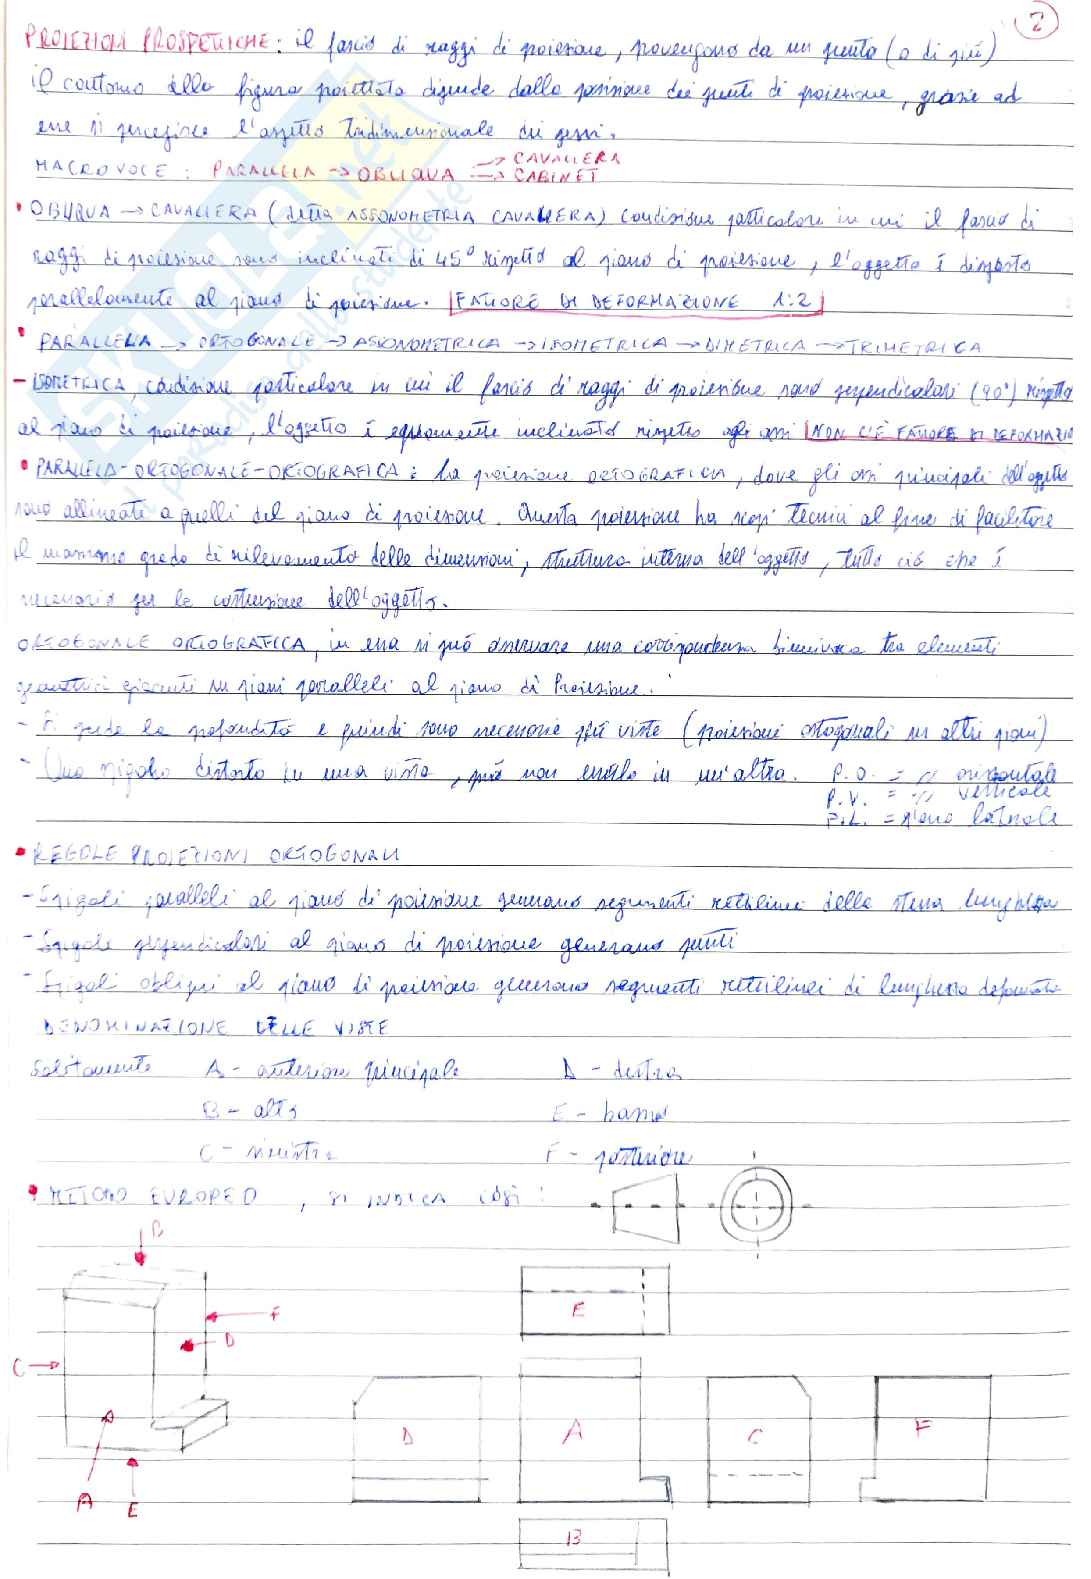 2
PROIEZIONI PROSPETTICHE: il fascio di raggi di proiezione, provengono da un punto (o di più)
il contorno della figura proiettata dipende dalla posizione dei punti di proiezione, grazie ad
esse si percepisce l'aspetto tridimensionale dei
MACROVOCE: PARALLELA → OBLIQUA → CAVALIERA
→ CABINET
• OBLIQUA → CAVALIERA (detta ASSONOMETRIA CAVALIERA) condizione particolare in cui il fascio di
raggi di proiezione sono inclinati di 45° rispetto al piano di proiezione, l'oggetto è disposto
parallelamente al piano di proiezione. FATTORE DI DEFORMAZIONE 1:2
• PARALLELA → ORTOGONALE → ASSONOMETRICA → ISOMETRICA → DIMETRICA → TRIMETRICA
- ISOMETRICA, condizione particolare in cui il fascio di raggi di proiezione sono perpendicolari (90°) rispetto
al piano di proiezione, l'oggetto è equamente inclinato rispetto agli assi NON C'È FATTORE DI DEFORMAZIO
• PARALLELA-ORTOGONALE-ORTOGRAFICA: La proiezione ORTOGRAFICA, dove gli assi principali dell'oggetto
sono allineati a quelli del piano di proiezione. Questa proiezione ha scopi tecnici al fine di facilitare
il massimo grado di rilevamento delle dimensioni, struttura interna dell'oggetto, tutto ciò che è
necessario per la costruzione dell'oggetto.
ORTOGONALE ORTOGRAFICA, in essa si può osservare una corrispondenza biunivoca tra elementi
geometrici giacenti su piani paralleli al piano di Proiezione.
- Si perde la profondità e quindi sono necessarie più viste (proiezioni ortogonali su altri piani)
- Uno spigolo distorto in una vista, può non esserlo in un'altra. P.O. = // orizzontale
P.V. = // verticale
P.L. = piano laterale
• REGOLE PROIEZIONI ORTOGONALI
- Spigoli paralleli al piano di proiezione generano segmenti rettilinei della stessa lunghezza
- Spigoli perpendicolari al piano di proiezione generano punti
- Spigoli obliqui al piano di proiezione generano segmenti rettilinei di lunghezza deformata
DENOMINAZIONE DELLE VISTE
Solitamente A - anteriore principale D - destra
B - alto E - basso
C - sinistra F - posteriore
• METODO EUROPEO, SI INDICA COSÌ:
B
F
D
C
A
E
E
D A C F
B
SKUOLA.net